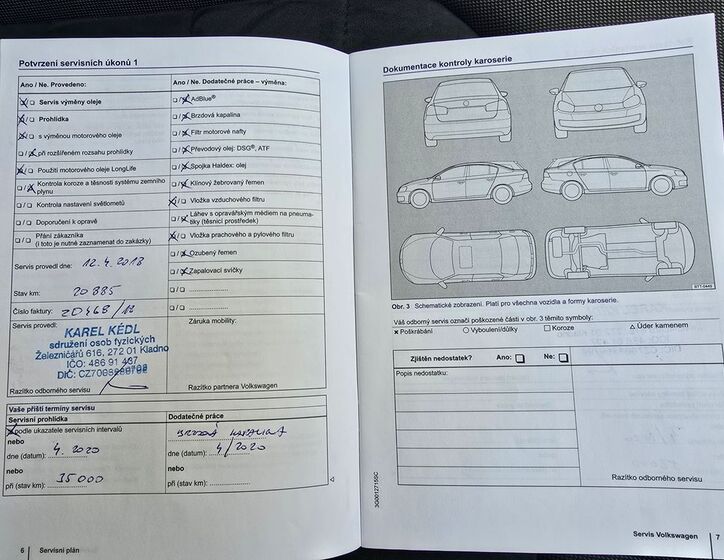 Potvrzení servisních úkonů 1
Ano / Ne. Provedeno:
☒/☐ Servis výměny oleje
☒/☐ Prohlídka
☒/☐ s výměnou motorového oleje
☐/☒ při rozšířeném rozsahu prohlídky
☒/☐ Použití motorového oleje LongLife
☐/☒ Kontrola koroze a těsnosti systému zemního
plynu
☐/☐ Kontrola nastavení světlometů
☐/☐ Doporučení k opravě
☐/☐ Přání zákazníka
(i toto je nutné zaznamenat do zakázky)
Servis provedl dne: 12.4.2018
Stav km: 20 885
Číslo faktury: ZD468/18
Servis provedl:
KAREL KÉDL
sdružení osob fyzických
Železničářů 616, 272 01 Kladno
IČO: 486 91 467
DIČ:
Razítko odborného servisu
Ano / Ne. Dodatečné práce – výměna:
☐/☒ AdBlue®
☐/☒ Brzdová kapalina
☐/☒ Filtr motorové nafty
☐/☒ Převodový olej: DSG®, ATF
☐/☒ Spojka Haldex: olej
☐/☒ Klínový žebrovaný řemen
☒/☐ Vložka vzduchového filtru
☐/☒ Láhev s opravářským médiem na pneuma-
tiky (těsnicí prostředek)
☒/☐ Vložka prachového a pylového filtru
☐/☒ Ozubený řemen
☐/☒ Zapalovací svíčky
☐/☐ ....................
☐/☐ ....................
Záruka mobility:
Razítko partnera Volkswagen
Vaše příští termíny servisu
Servisní prohlídka
☒ podle ukazatele servisních intervalů
nebo
dne (datum): 4. 2020
nebo
při (stav km): 35 000
Dodatečné práce
BRZDOVÁ KAPALINA
dne (datum): 4/2020
nebo
při (stav km): ....................
6 Servisní plán
Dokumentace kontroly karoserie
BTT-0449
Obr. 3 Schematické zobrazení. Platí pro všechna vozidla a formy karoserie.
Váš odborný servis označí poškozené části v obr. 3 těmito symboly:
× Poškrábání ○ Vyboulení/důlky □ Koroze △ Úder kamenem
Zjištěn nedostatek? Ano: ☐ Ne: ☐
Popis nedostatku:
Razítko odborného servisu
3G0012715SC
Servis Volkswagen 7